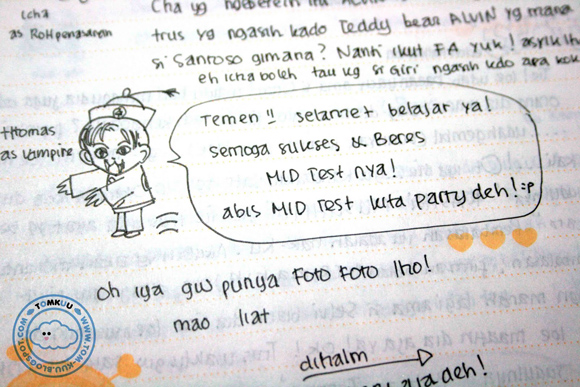 Icha
as Roh penasaran
trus yg ngasih kado Teddy bear ALVIN yg mana
si Sanroso gimana? Nanti ikut FA yuk! asyik lho
eh icha boleh tau kg si Giri ngasih kdo apa
Thomas
as Vampire
Temen!! selamet belajar ya!
semoga sukses & Beres
MID Test nya!
abis MID Test kita party deh! :p
oh iya gw punya Foto Foto lho!
mao liat
dihalm
deh!
TOMKUU
WWW.TOM-KUU.BLOGSPOT.COM